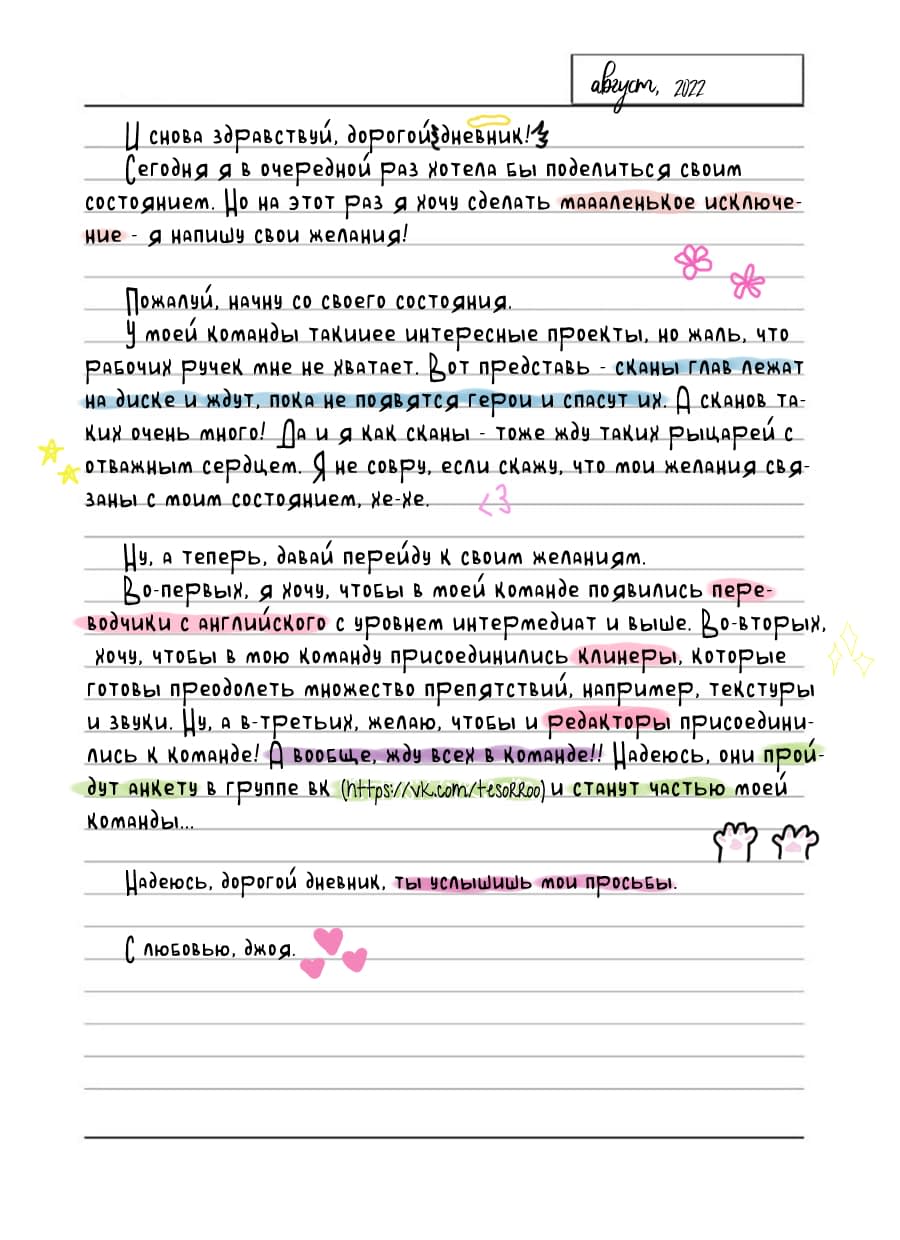 август, 2022
И снова здравствуй, дорогой дневник!
Сегодня я в очередной раз хотела бы поделиться своим
состоянием. Но на этот раз я хочу сделать маааленькое исключе-
ние - я напишу свои желания!
Пожалуй, начну со своего состояния.
У моей команды такииее интересные проекты, но жаль, что
рабочих ручек мне не хватает. Вот представь - сканы глав лежат
на диске и ждут, пока не появятся герои и спасут их. А сканов та-
ких очень много! Да и я как сканы - тоже жду таких рыцарей с
отважным сердцем. Я не совру, если скажу, что мои желания свя-
заны с моим состоянием, хе-хе.
<3
Ну, а теперь, давай перейду к своим желаниям.
Во-первых, я хочу, чтобы в моей команде появились пере-
водчики с английского с уровнем интермедиат и выше. Во-вторых,
хочу, чтобы в мою команду присоединились клинеры, которые
готовы преодолеть множество препятствий, например, текстуры
и звуки. Ну, а в-третьих, желаю, чтобы и редакторы присоедини-
лись к команде! А вообще, жду всех в команде!! Надеюсь, они прой-
дут анкету в группе вк (https://vk.com/tesorroo) и станут частью моей
команды...
Надеюсь, дорогой дневник, ты услышишь мои просьбы.
С любовью, джоя.